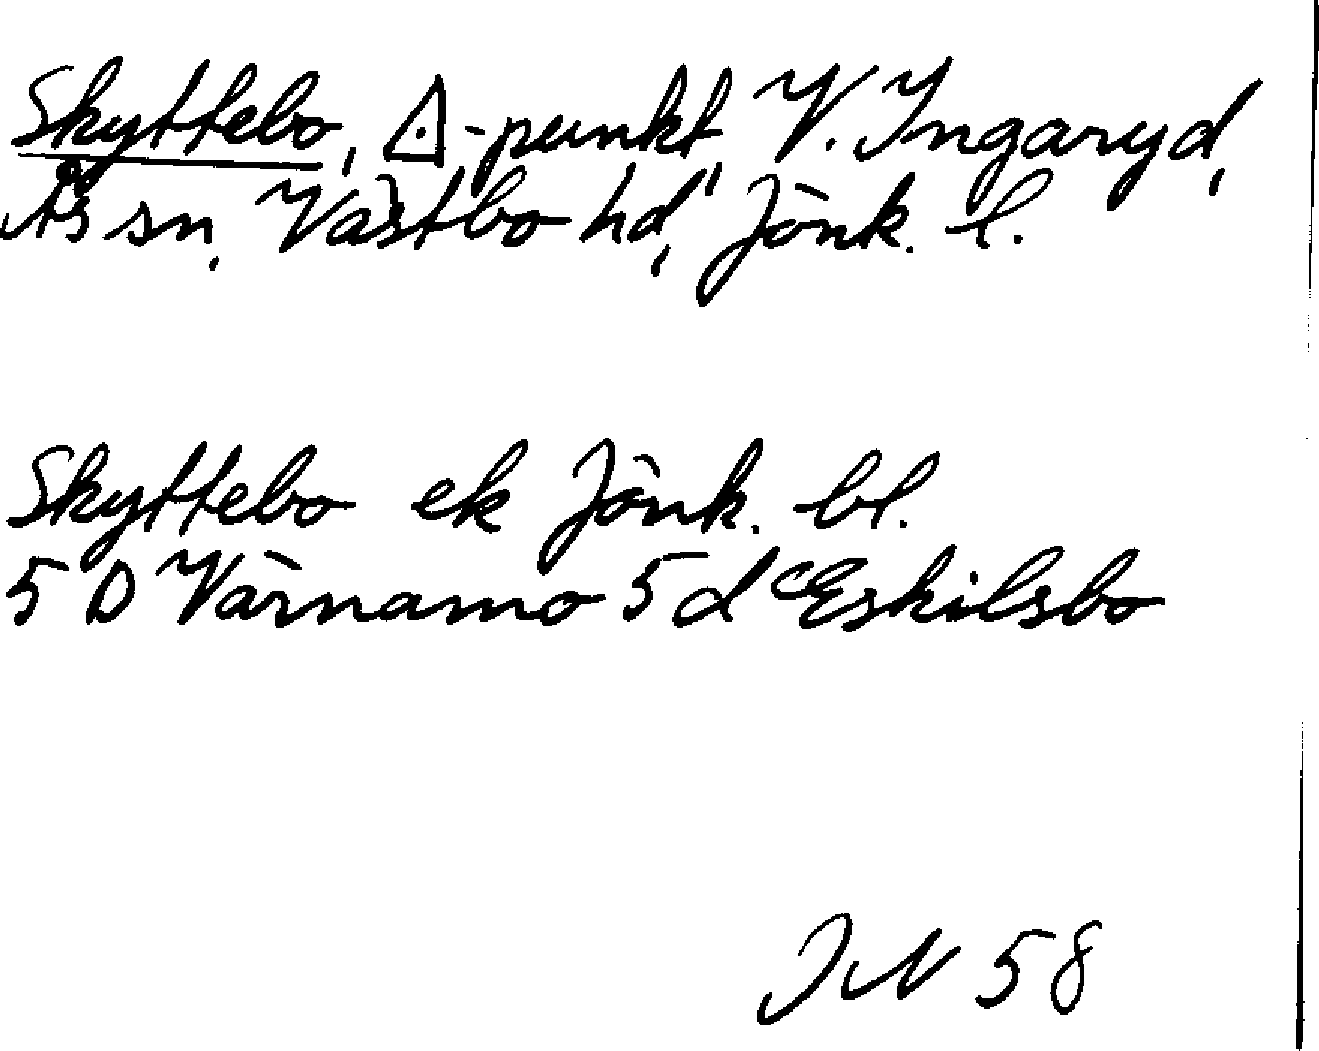 Skyttebo, △-punkt, V. Ingaryd,
Ås sn, Västbo hd, Jönk. l.
Skyttebo ek Jönk. bl.
5 D Värnamo 5 d Eskilsbo
JN 58